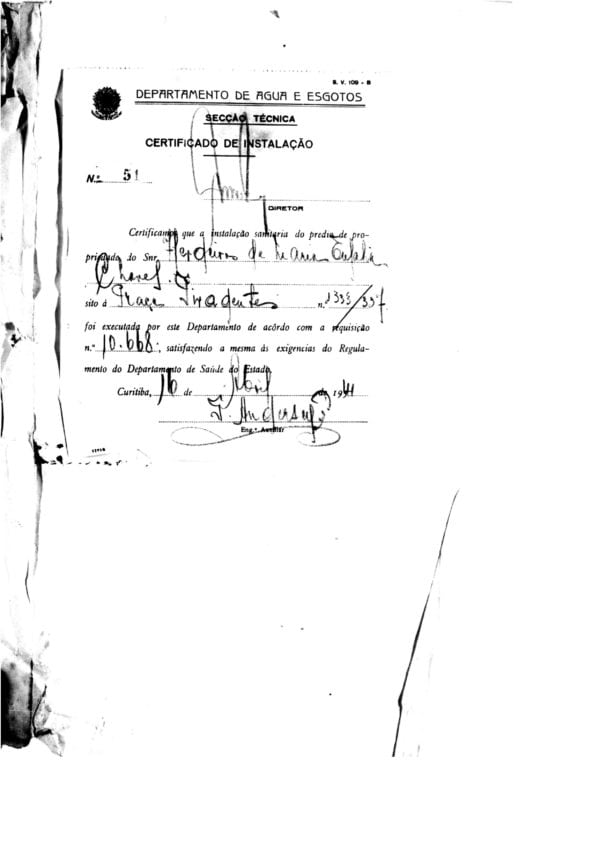 S. V. 109 - B
DEPARTAMENTO DE AGUA E ESGOTOS
SECCÃO TÉCNICA
CERTIFICADO DE INSTALAÇÃO
N.º 51
DIRETOR
Certificamos que a instalação sanitaria do predio de pro-
priedade do Snr. Herdeiros de Maria Eulalia
Chaves
sito á Praça Tiradentes n.º 1333/337
foi executada por este Departamento de acôrdo com a requisição
n.º 10.668, satisfazendo a mesma às exigencias do Regula-
mento do Departamento de Saúde do Estado.
Curitiba, 16 de Abril de 1941
Eng.º Auxiliar